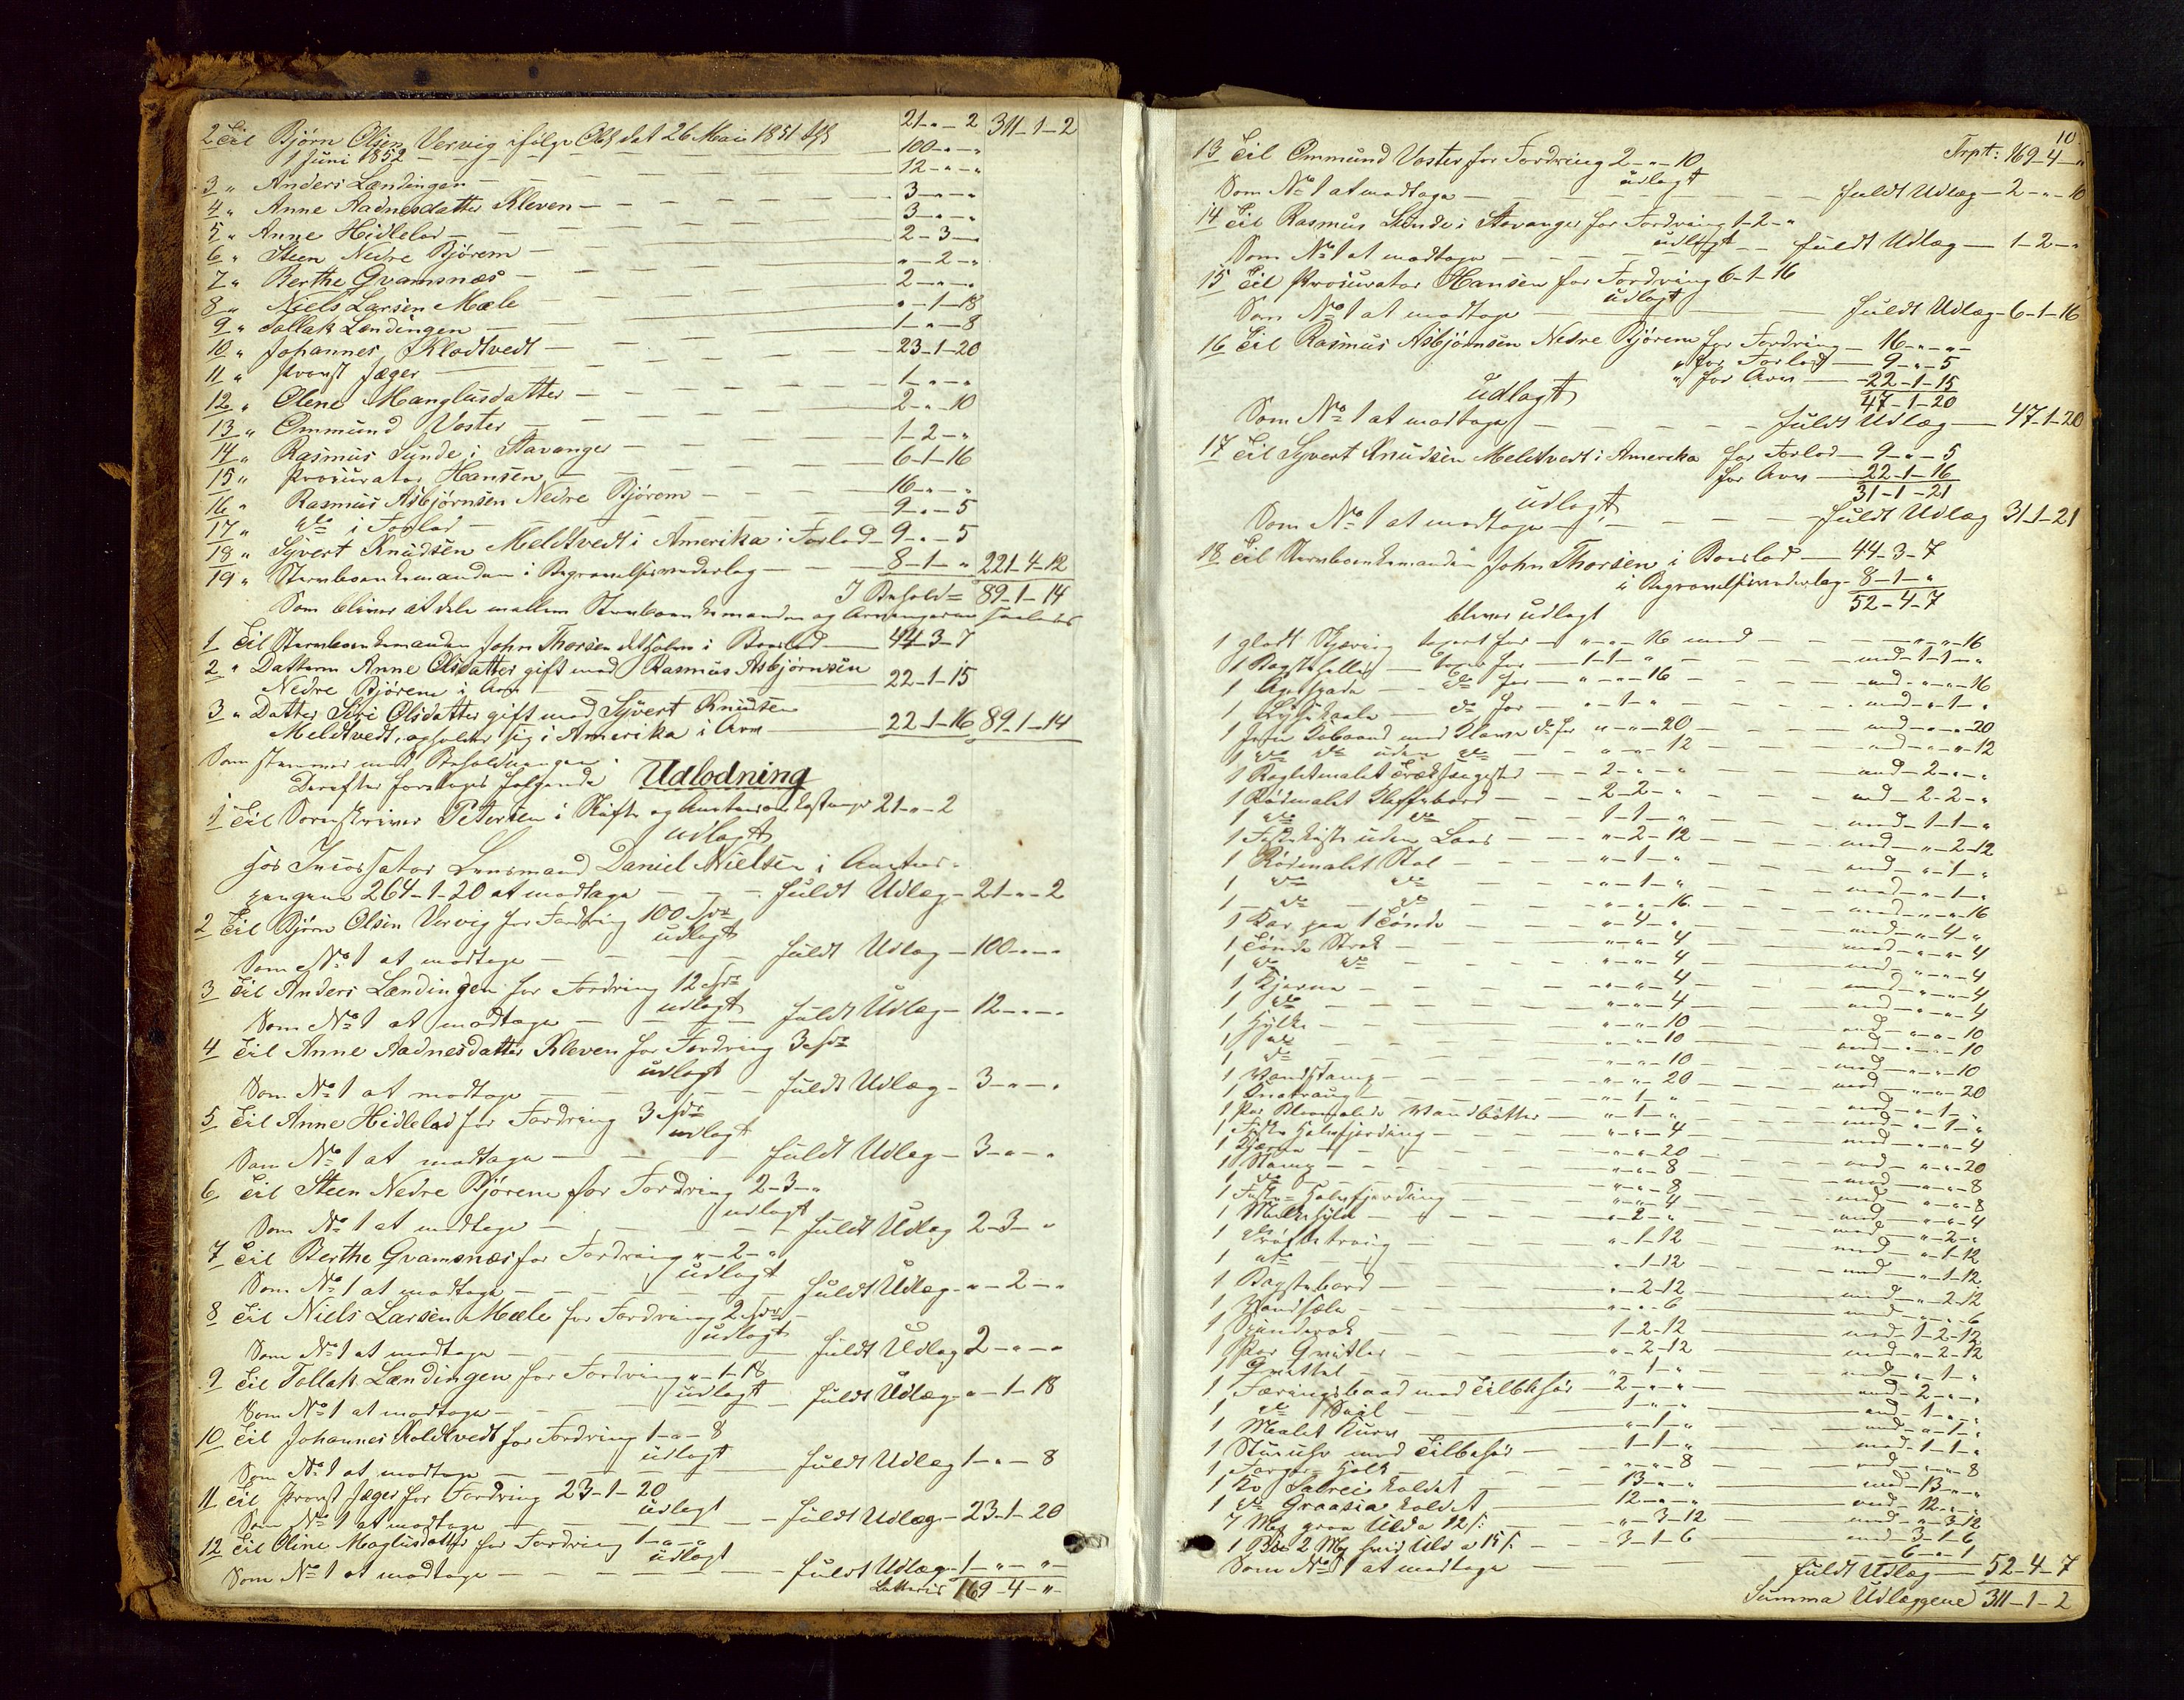 21-"-2 311-1-2
2 Til Bjørn Olsen Vervig ifølge Obl dat 26 Mai 1851 tgl
1 Juni 1852 - - - 100-"-"
3 " Anders Lændingen - - - 12-"-"
4 " Anne Aadnesdatter Kleven - - - 3-"-"
5 " Anne Hidlelad - - - 3-"-"
6 " Steen Nedre Bjørem - - - 2-3-"
7 " Berthe Gvamsnæs - - - "-2-"
8 " Niels Larsen Mæle - - - 2-"-"
9 " Tollak Lændingen - - - "-1-18
10 " Johannes Kloltvedt - - - 1-"-8
11 " Provst Jæger - - - 23-1-20
12 " Olene Manglusdatter - - - 1-"-"
13 " Ommund Voster - - - 2-"-10
14 " Rasmus Sunde i Stavanger - - - 1-2-"
15 " Procurator Hansen - - - 6-1-16
16 " Rasmus Asbjørnsen Nedre Bjørem - - - 16-"-"
17 " do i Forlod - - - 9-"-5
18 " Syvert Knudsen Meldtvedt i Amerika i Forlod - 9-"-5
19 " Stervboenkemanden i Begravelsesvederlag - - 8-1-" 221-4-12
I Behold = 89-1-14
Som bliver at dele mellem Stervboenkemanden og Arvingerne saaledes
1 Til Stervboenkemanden John Thorsen det halve i Boeslod - 44-3-7
2 " Datteren Anne Olsdatter gift med Rasmus Asbjørnsen
Nedre Bjørem i Arv - - - 22-1-15
3 " Datter Siri Olsdatter gift med Syvert Knudsen
Meldtvedt, opholder sig i Amerika i Arv - 22-1-16 89-1-14
Som stemmer med Beholdningen.
Derefter foretages følgende Udlodning
1 Til Sorenskriver Petersen i Skifte og Auctionsomkostninger 21-"-2
udlagt
hos Incassator Lensmand Daniel Nielsen i Auctions-
pengene 264-1-20 at modtage - - fuldt Udlæg - 21-"-2
2 Til Bjørn Olsen Vervig for Fordring 100 Spd
udlagt
Som No 1 at modtage - - - fuldt Udlæg - 100-"-"
3 Til Anders Lændingen for Fordring 12 Spd
udlagt
Som No 1 at modtage - - - fuldt Udlæg - 12-"-"
4 Til Anne Aadnesdatter Kleven for Fordring 3 Spd
udlagt
Som No 1 at modtage - - - fuldt Udlæg - 3-"-"
5 Til Anne Hidlelad for Fordring 3 Spd
udlagt
Som No 1 at modtage - - - fuldt Udlæg - 3-"-"
6 Til Steen Nedre Bjørem for Fordring 2-3-"
udlagt
Som No 1 at modtage - - - fuldt Udlæg 2-3-"
7 Til Berthe Gvamsnæs for Fordring "-2-"
udlagt
Som No 1 at modtage - - - fuldt Udlæg - "-2-"
8 Til Niels Larsen Mæle for Fordring 2 Spd
udlagt
Som No 1 at modtage - - - fuldt Udlæg 2-"-"
9 Til Tollak Lændingen for Fordring "-1-18
udlagt
Som No 1 at modtage - - - fuldt Udlæg - "-1-18
10 Til Johannes Koldtvedt for Fordring 1-"-8
udlagt
Som No 1 at modtage - - - fuldt Udlæg 1-"-8
11 Til Provst Jæger for Fordring 23-1-20
udlagt
Som No 1 at modtage - - - fuldt Udlæg - 23-1-20
12 Til Oline Maglusdatter for Fordring 1-"-"
udlagt
Som No 1 at modtage - - - fuldt Udlæg - 1-"-"
Latteris 169-4-"
10.
Trpt: 169-4-"
13 Til Ommund Voster for Fordring 2-"-10
udlagt
Som No 1 at modtage - - - fuldt Udlæg - 2-"-10
14 Til Rasmus Sunde i Stavanger for Fordring 1-2-"
udlagt
Som No 1 at modtage - - - fuldt Udlæg - 1-2-"
15 Til Procurator Hansen for Fordring 6-1-16
udlagt
Som No 1 at modtage - - - fuldt Udlæg - 6-1-16
16 Til Rasmus Asbjørnsen Nedre Bjørem for Fordring - 16-"-"
" for Forlod - 9-"-5
" for Arv - 22-1-15
udlagt 47-1-20
Som No 1 at modtage - - - fuldt Udlæg - 47-1-20
17 Til Syvert Knudsen Meldtvedt i Amerika for Forlod - 9-"-5
for Arv - 22-1-16
31-1-21
udlagt
Som No 1 at modtage - - - fuldt Udlæg 31-1-21
18 Til Stervboenkemanden John Thorsen i Boeslod - 44-3-7
i Begravelsesvederlag - 8-1-"
52-4-7
bliver udlagt
1 gladt - "-"-16 med - "-"-16
1 Bagstehelle - 1-1-" - med - 1-1-"
1 - do for - "-"-16 - med - "-"-16
1 Lysekaale - do for - "-1-" - med - "-1-"
1 do for "-"-20 - med - "-"-20
1 do do uden do - "-"-12 - med - "-"-12
1 - 2-"-" - med - 2-"-"
1 Rødmalet Klaffebord - 2-2-" - med - 2-2-"
1 do do - 1-1-" - med - 1-1-"
1 uden Laas - "-2-12 - med - "-2-12
1 Rødmalet Stol - "-1-" - med - "-1-"
1 do do - "-1-" - med - "-1-"
1 do do - "-"-16 - med - "-"-16
1 Kar paa 1 Tønde - "-4-" - med - "-4-"
1 Tønde Strak - "-"-4 - med - "-"-4
1 do do - "-"-4 - med - "-"-4
1 Kjerne - "-"-4 - med - "-"-4
1 do - "-"-4 - med - "-"-4
1 Hylke - "-"-10 - med - "-"-10
1 do - "-"-10 - med - "-"-10
1 do - "-"-10 - med - "-"-10
1 Vandstamp - "-"-20 - med - "-"-20
1 Knatraug - "-1-" - med - "-1-"
1 Par Vandbøtter - "-1-" - med - "-1-"
1 Halvfjerding - "-"-4 - med - "-"-4
1 Kjerne - "-"-20 - med - "-"-20
1 Stamp - "-"-8 - med - "-"-8
1 do - "-"-8 - med - "-"-8
1 Halvfjerding - "-"-4 - med - "-"-4
1 Melkehyld - "-2-" - med - "-2-"
1 - "-1-12 - med - "-1-12
1 do - "-1-12 - med - "-1-12
1 Bagstebord - "-2-12 - med - "-2-12
1 - "-"-6 - med - "-"-6
1 Spinderok - 1-2-12 - med - 1-2-12
1 Par - "-2-12 - med - "-2-12
1 - "-1-" - med - "-1-"
1 Færingsbaad med Tilbehør - 2-"-" - med - 2-"-"
1 do Seil - 1-"-" - med - 1-"-"
1 Malet Kurv - "-1-" - med - "-1-"
1 Stueuhr med Tilbehør - 1-1-" - med - 1-1-"
1 - "-"-8 - med - "-"-8
1 Ko kaldet - 13-"-" - med - 13-"-"
1 do Graasia kaldet - 12-"-" - med - 12-"-"
7 Mrk graa Uld a 12 s - "-3-12 - med - "-3-12
1 2 Mrk hvid Uld a 15 s - 3-1-6 - med 3-1-6
Som No 1 at modtage - 6-"-1
fuldt Udlæg - 52-4-7
Summa Udlæggene 311-1-2